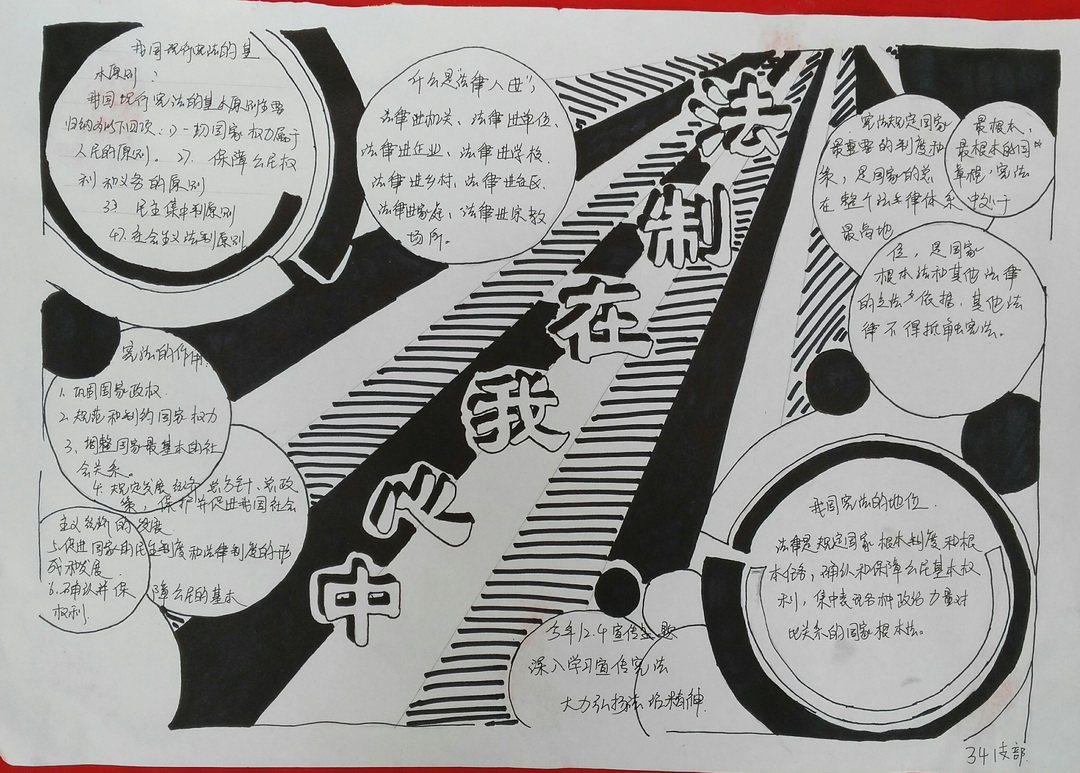 我国现行宪法的基
本原则？
我国现行宪法的基本原则主要
归纳为以下四项：1）一切国家权力属于
人民的原则。2）. 保障公民权
利和义务的原则
3）民主集中制原则
4）. 社会主义法制原则
什么是“法律八进”，
法律进机关、法律进单位、
法律进企业、法律进学校、
法律进乡村、法律进社区、
法律进家庭、法律进宗教
场所。
法
制
在
我
心
中
宪法规定国家
最重要的制度和
策，是国家的总
在整个法律体系
最高地
最根本、
最根本的
章程，宪法
中处于
位，是国家
根本法和其他法律
的立法依据，其他法
律不得抵触宪法。
宪法的作用
1. 巩固国家政权
2. 规范和制约国家权力
3、调整国家最基本的社
会关系。
4. 规定发展经济总方针、总政
策，保护并促进我国社会
主义经济的发展
5. 促进国家的民主制度和法律制度的形
成和发展
6. 确认并保 障公民的基本
权利.
我国宪法的地位
法律是规定国家根本制度和根
本任务，确认和保障公民基本权
利，集中表现各种政治力量对
比关系的国家根本法。
今年12.4宣传主题
深入学习宣传宪法
大力弘扬法治精神
34支部